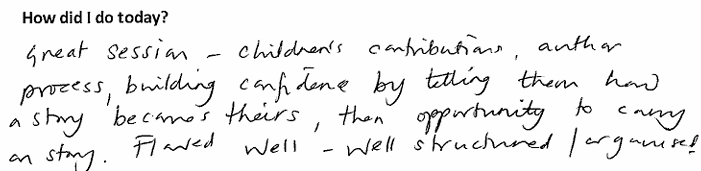 How did I do today?
Great session – children's contributions, author
process, building confidence by telling them how
a story becomes theirs, then opportunity to carry
on story. Flowed well – well structured / organised